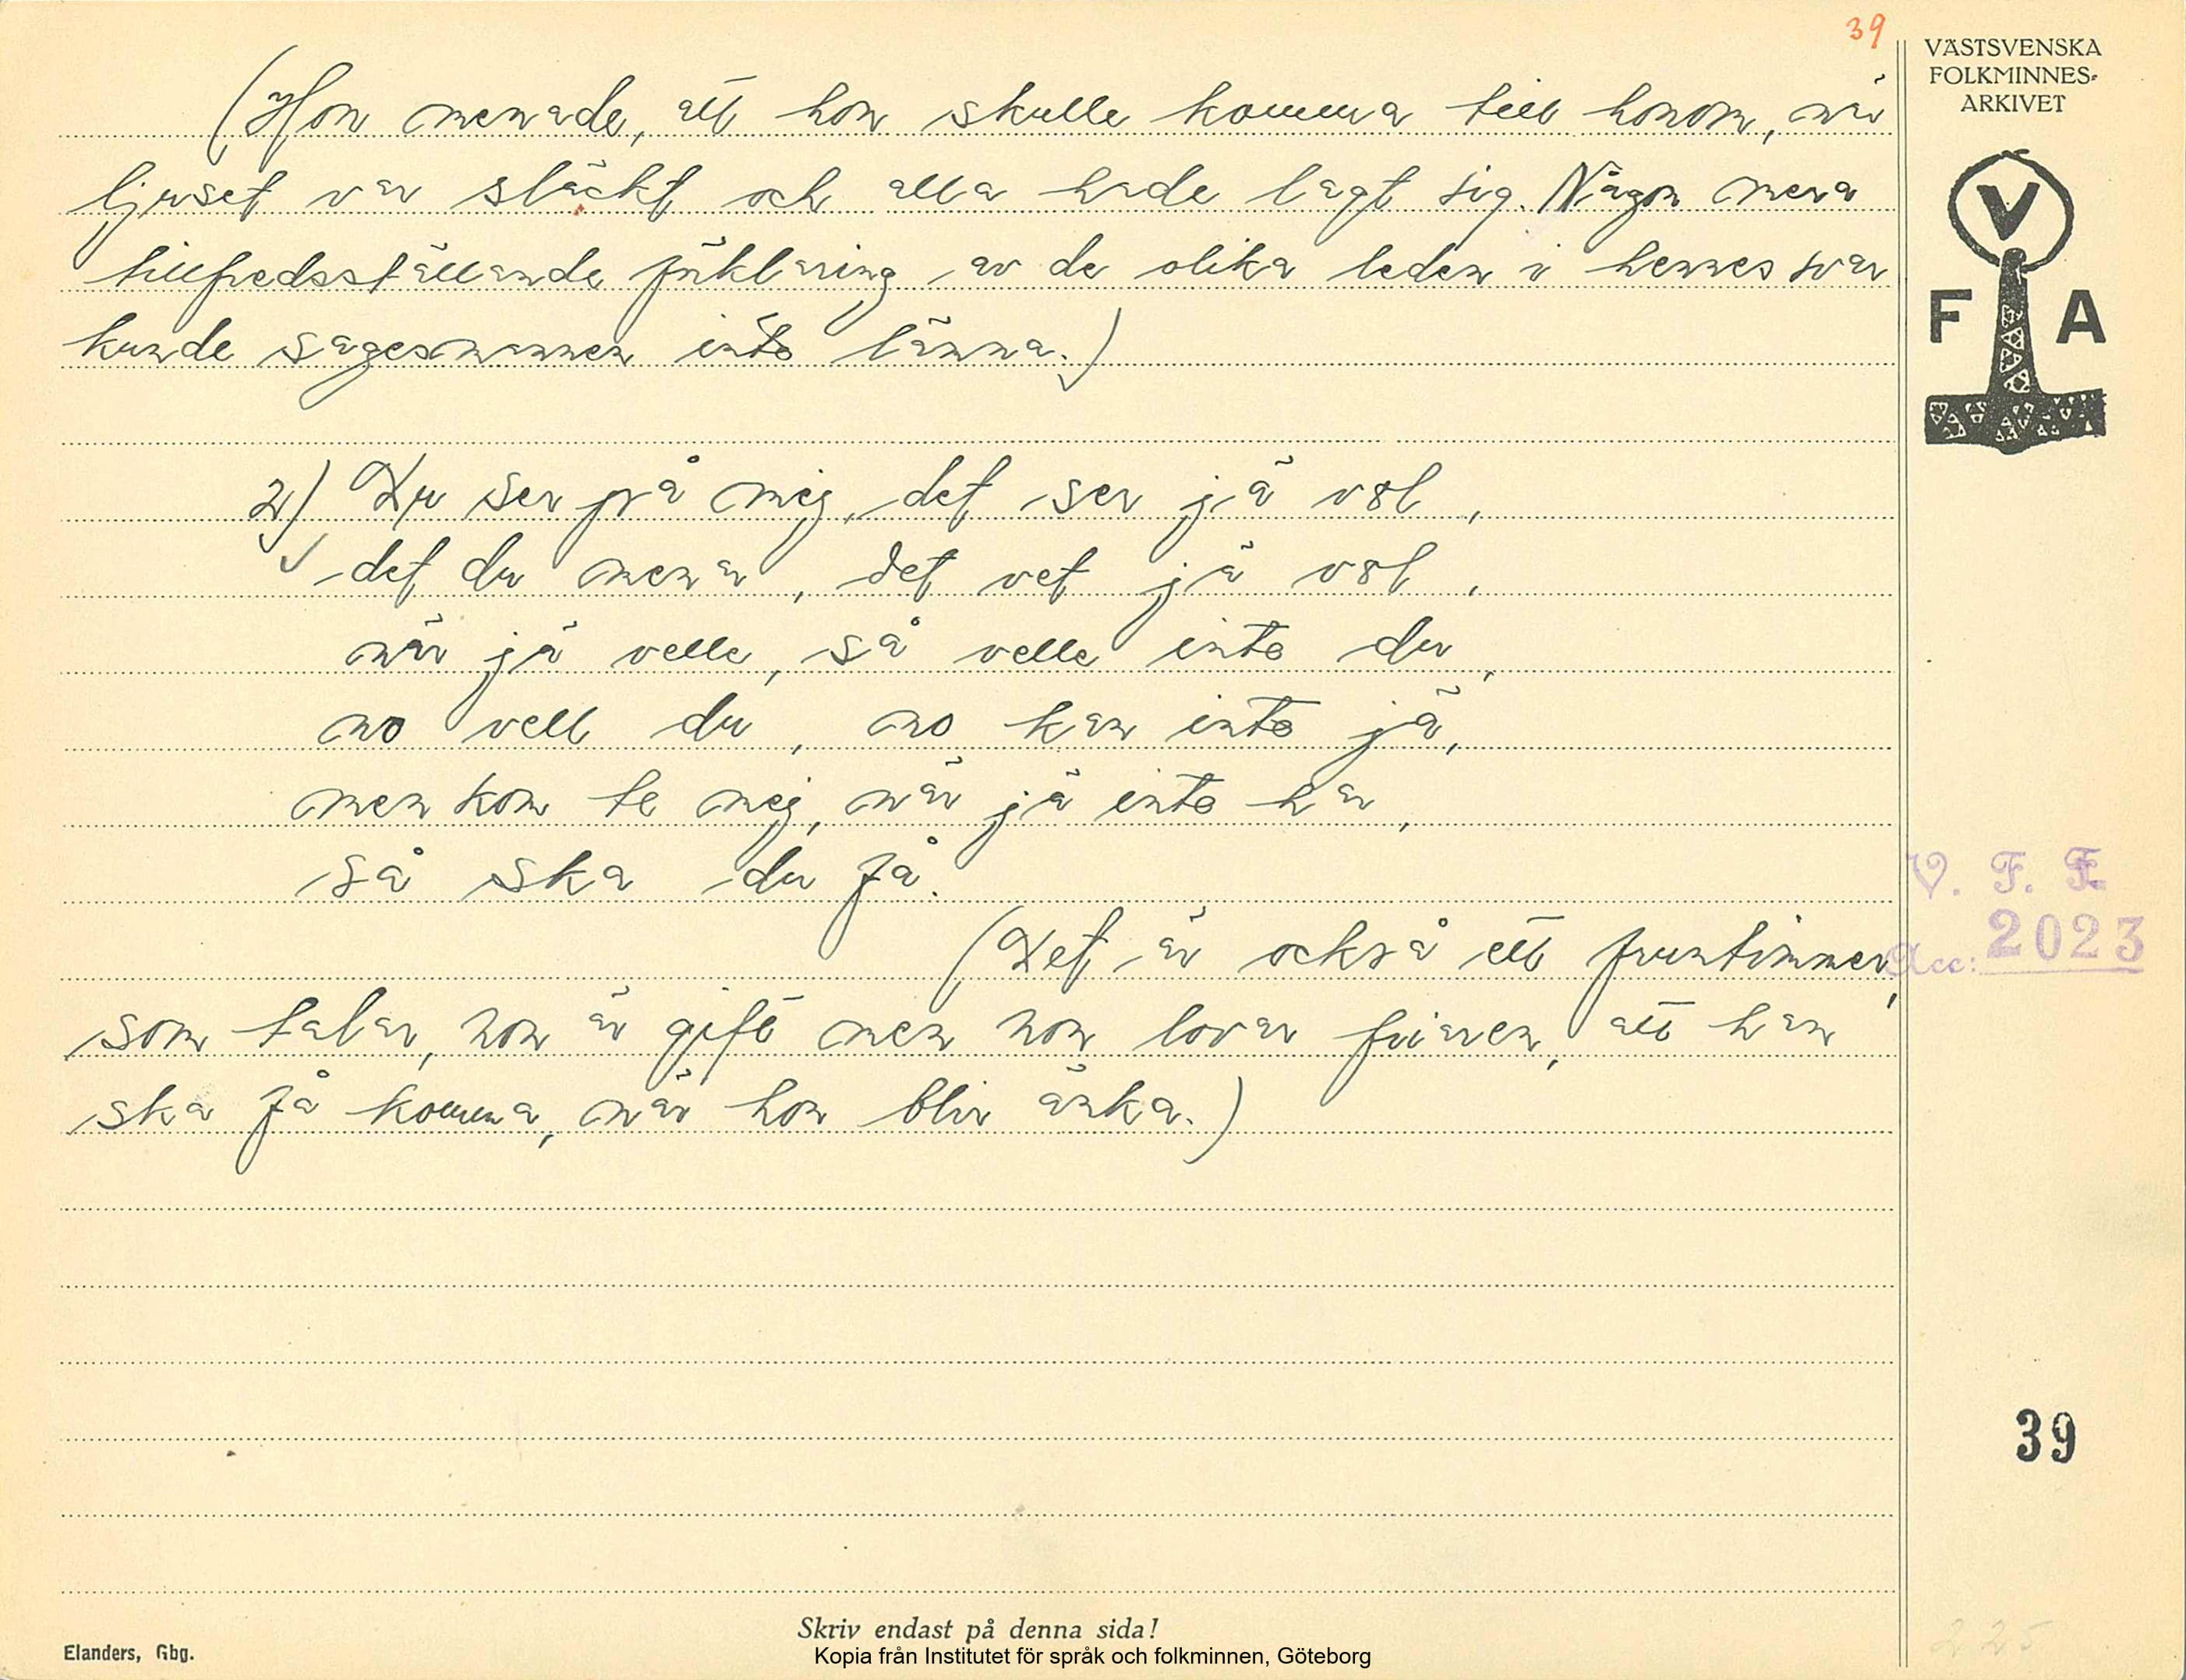 39
VÄSTSVENSKA
FOLKMINNES-
ARKIVET
V
F A
(Hon menade, att hon skulle komma till honom, när
ljuset var släckt och alla hade lagt sig. Någon mera
tillfredsställande förklaring av de olika leden i hennes svar
kunde sagesmannen inte lämna.)
2) Du ser på mig, det ser jä väl,
det du menar, det vet jä väl,
när jä velle, så velle inte du,
no vell du, no kan inte jä,
men kom te mig, när jä inte har,
så ska du få.
(Det är också ett fruntimmer,
som talar, hon är gift men hon lovar friaren, att han
ska få komma, när hon blir änka.)
V. F. F.
Acc: 2023
39
225
Skriv endast på denna sida!
Elanders, Gbg.
Kopia från Institutet för språk och folkminnen, Göteborg